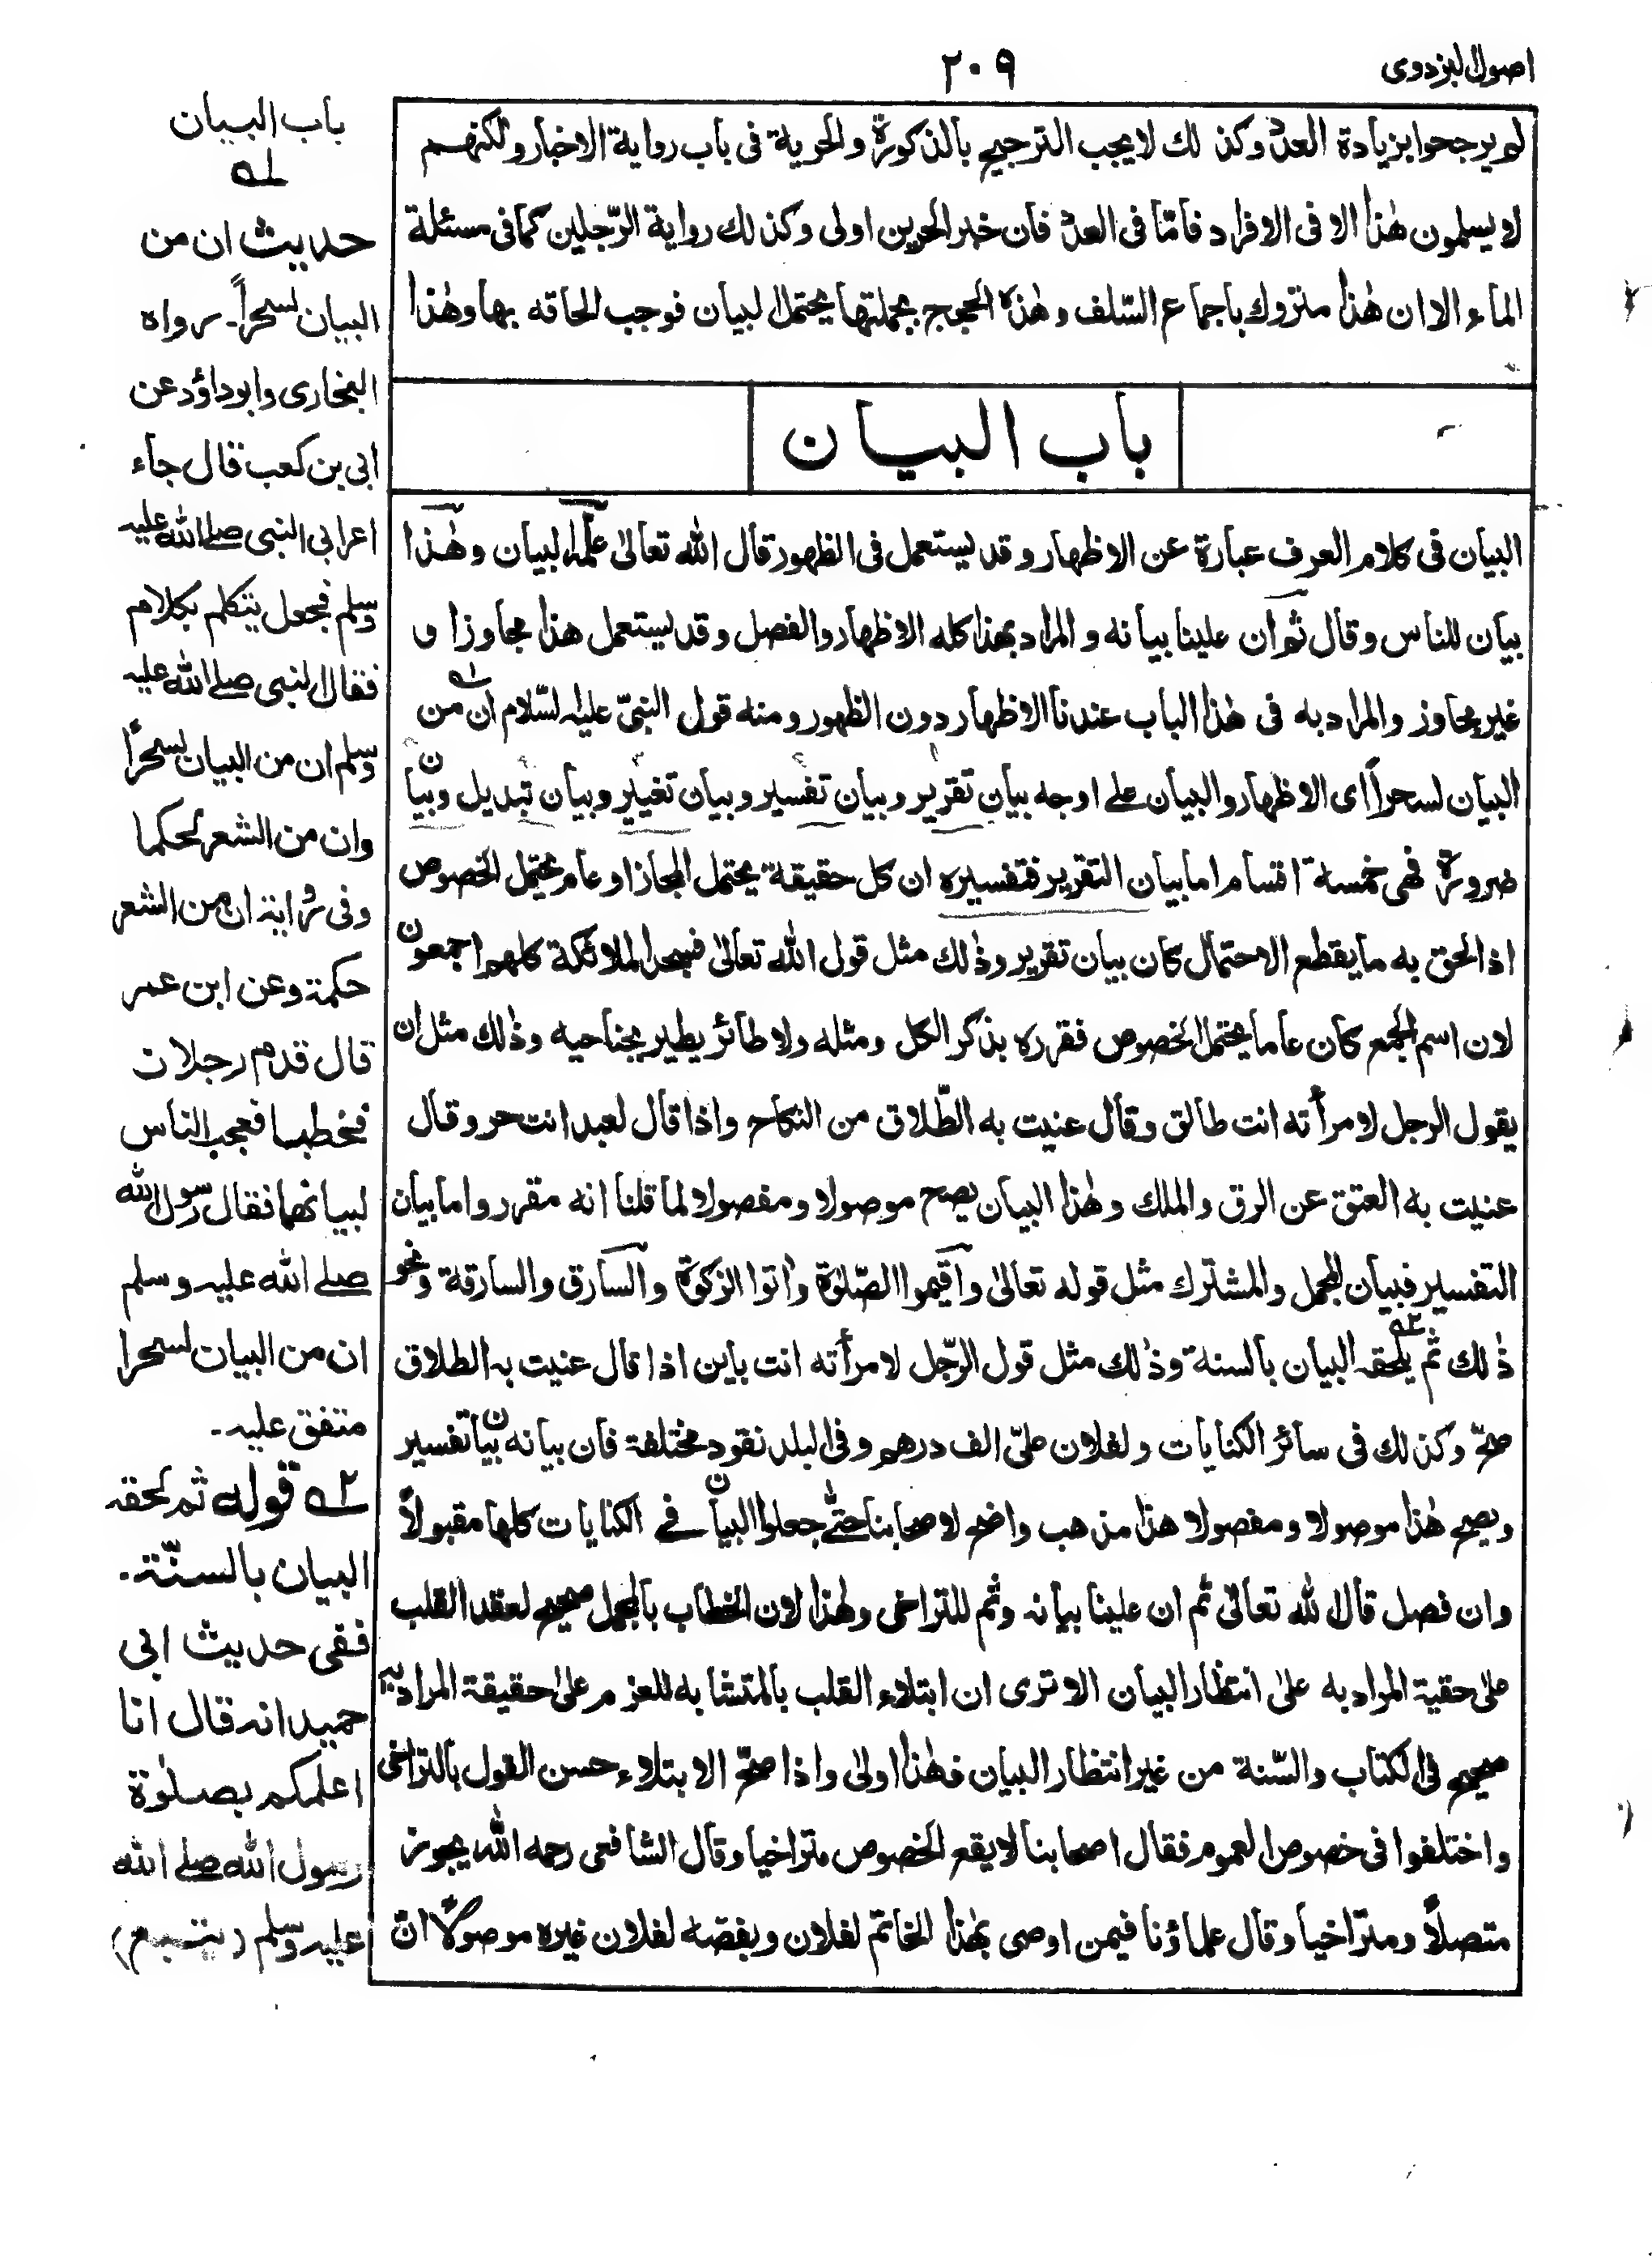 اصول البزدوى
٢٠٩
لم يرجحوا بزيادة العدد وكذلك لا يجب الترجيح بالذكورة والحرية فى باب رواية الاخبار ولكنهم
لا يسلمون هذا الا فى الافراد فأمّا فى العدد فان خبر الحرين اولى وكذلك رواية الرّجلين كما فى مسئلة
الماء الا ان هذا متروك باجماع السّلف وهذه الحجج بجملتها يحتمل البيان فوجب الحاقه بها وهذا
باب البيان
البيان فى كلام العرف عبارة عن الاظهار وقد يستعمل فى الظهور قال الله تعالى علّمه البيان وهذا
بيان للناس وقال ثم ان علينا بيانه والمراد بهذا كله الاظهار والفصل وقد يستعمل هذا مجاوزا و
غير مجاوز والمراد به فى هذا الباب عندنا الاظهار دون الظهور ومنه قول النبىّ عليه السّلام ان ١ـه من
البيان لسحراً اى الاظهار والبيان على اوجه بيان تقرير وبيان تفسير وبيان تغيير وبيان تبديل وبيان
ضرورة فهى خمسة اقسام اما بيان التقرير فتفسيره ان كل حقيقة يحتمل المجاز او عام يحتمل الخصوص
اذا لحق به ما يقطع الاحتمال كان بيان تقرير وذلك مثل قول الله تعالى فسجد الملائكة كلهم اجمعون
لان اسم الجمع كان عاما يحتمل الخصوص فقرره بذكر الكل ومثله ولا طائر يطير بجناحيه وذلك مثل ان
يقول الرجل لامرأته انت طالق وقال عنيت به الطّلاق من النكاح واذا قال لعبد انت حر وقال
عنيت به العتق عن الرق والملك وهذا البيان يصح موصولا ومفصولا لما قلنا انه مقرر واما بيان
التفسير فبيان المجمل والمشترك مثل قوله تعالى واقيموا الصّلوة واتوا الزكوة والسارق والسارقة ونحو
ذلك ثم ٢ـه يلحقه البيان بالسنة وذلك مثل قول الرّجل لامرأته انت باين اذا قال عنيت به الطلاق
صحّ وكذلك فى سائر الكنايات ولفلان علىّ الف درهم وفى البلد نقود مختلفة فان بيانه بيان تفسير
ويصح هذا موصولا ومفصولا هذا مذهب واضح لاصحابنا حتّى جعلوا البيان فى الكنايات كلها مقبولاً
وان فصل قال الله تعالى ثم ان علينا بيانه وثم للتراخى وهذا لان الخطاب بالمجمل صحيح لعقد القلب
على حقية المراد به على انتظار البيان الا ترى ان ابتلاء القلب بالمتشابه للعزم على حقيقة المراد به
صحيح فى الكتاب والسّنة من غير انتظار البيان فهذا اولى واذا صحّ الابتلاء حسن القول بالتراخى
واختلفوا فى خصوص العموم فقال اصحابنا لا يقع الخصوص متراخيا وقال الشافعى رحمه الله يجوز
متصلاً ومتراخيا وقال علماؤنا فيمن اوصى بهذا الخاتم لفلان وبفصّه لفلان غيره موصولاً انّ
باب البيان
١ـه
حديث ان من
البيان لسحراً ـ رواه
البخارى وابوداؤد عن
ابى بن كعب قال جاء
اعرابى النبى صلى الله عليه
وسلم فجعل يتكلم بكلام
فقال النبى صلى الله عليه
وسلم ان من البيان لسحراً
وان من الشعر لحكما
وفى رواية ان من الشعر
حكمة وعن ابن عمر
قال قدم رجلان
فخطبا فعجب الناس
لبيانهما فقال رسول الله
صلى الله عليه وسلم
ان من البيان لسحرا
متفق عليه ـ
٢ـه قوله ثم لحقه
البيان بالسنّة ـ
ففى حديث ابى
حميد انه قال انا
اعلمكم بصلوٰة
رسول الله صلى الله
عليه وسلم